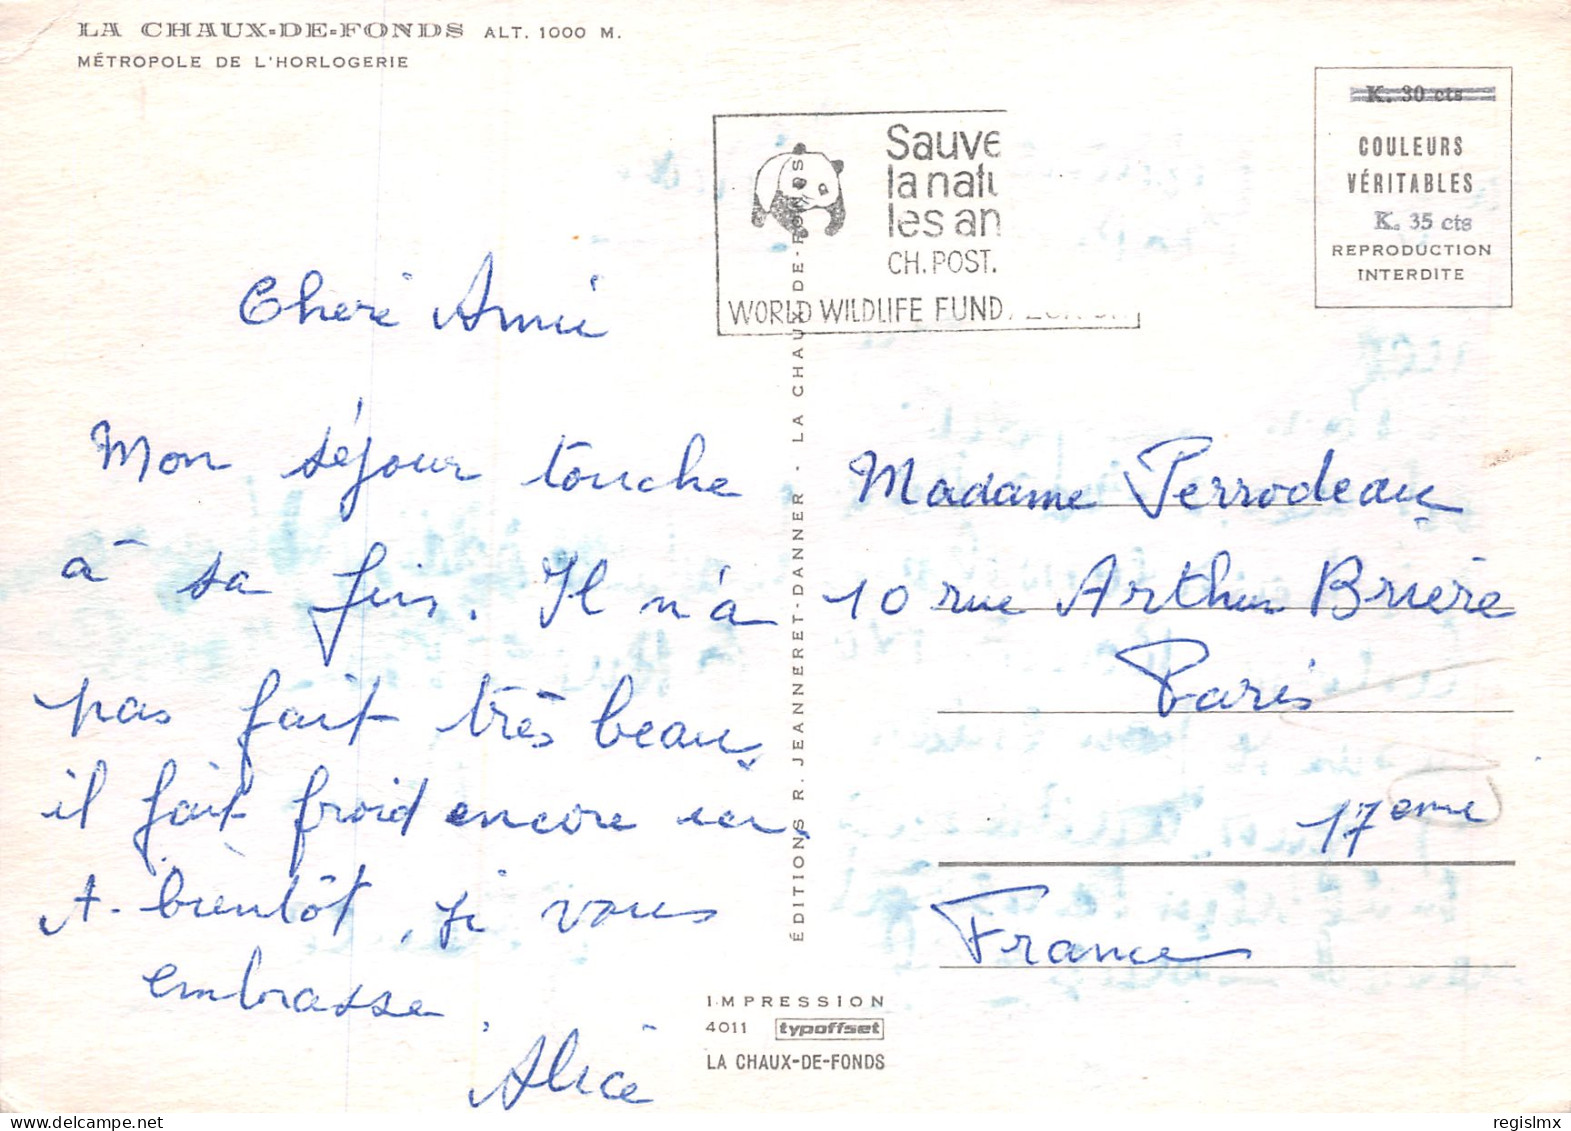 LA CHAUX-DE-FONDS ALT. 1000 M.
MÉTROPOLE DE L'HORLOGERIE
K. 30 cts
COULEURS
VÉRITABLES
K. 35 cts
REPRODUCTION
INTERDITE
Sauve
la natu
les an
CH. POST.
WORLD WILDLIFE FUND
Cheré Amie
Mon séjour touche
à sa fin. Il n'a
pas fait très beau,
il fait froid encore ier.
A. bientôt, je vous
embrasse
Alice
ÉDITIONS R. JEANNERET-DANNER - LA CHAUX-DE-FONDS
Madame Perrodeau
10 rue Arthur Brière
Paris
17eme
France
IMPRESSION
4011 typoffset
LA CHAUX-DE-FONDS
regislmx